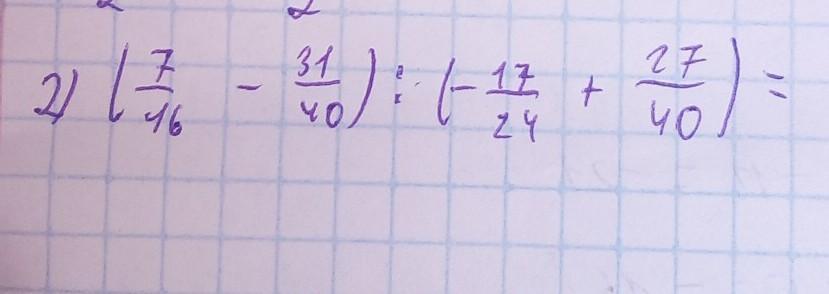 2) (7/16 - 31/40) : (-17/24 + 27/40) =